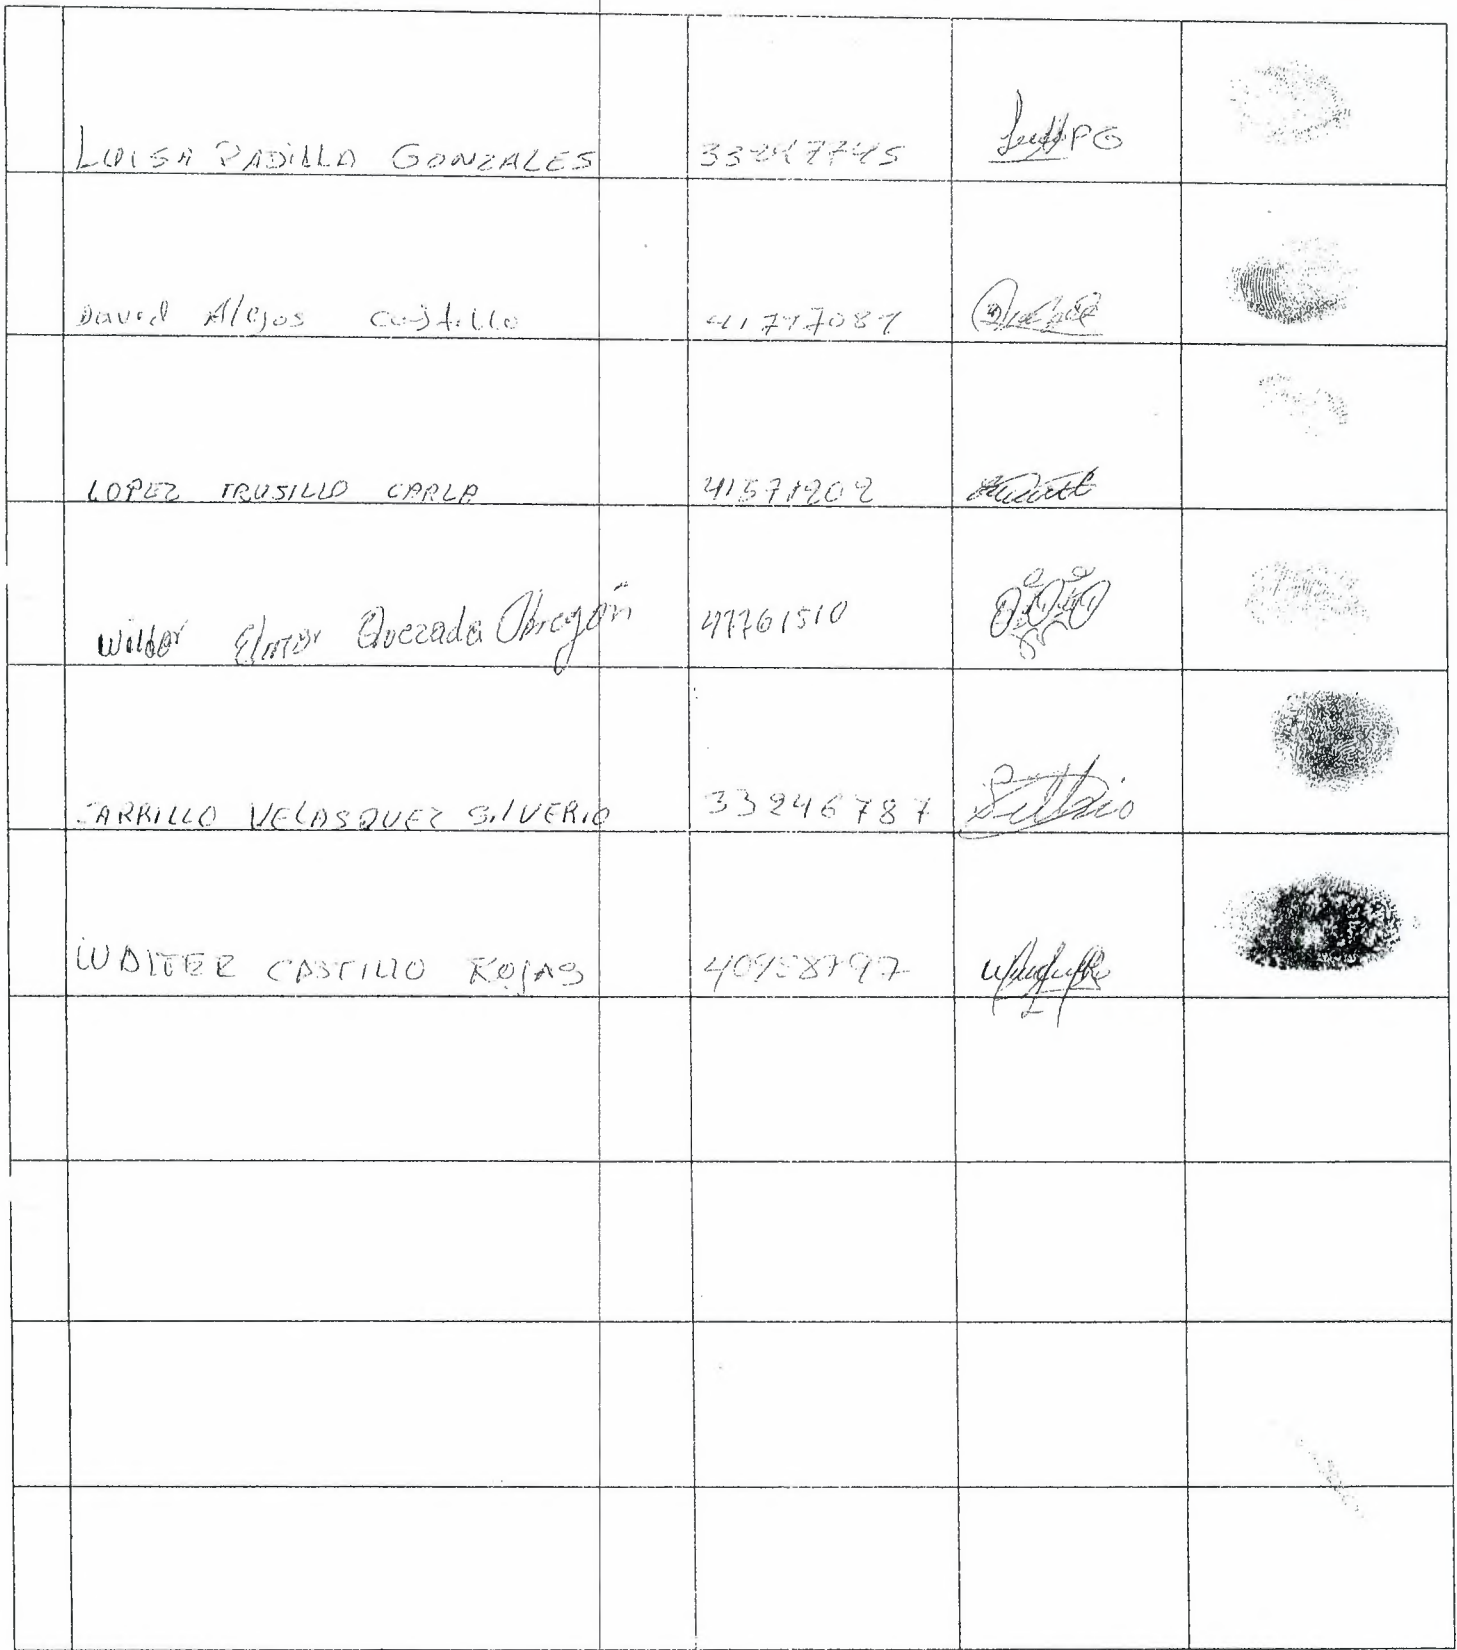 LUISA PADILLA GONZALES 33247745 PG
David Alejos Castillo 41747087
LOPEZ TRUSILLO CARLA 41571202
Wilder Elmer Quezada Obregón 47761510
ARRILLO VELASQUEZ SILVERIO 33246787 Silverio
WALTER CASTILLO ROJAS 40958797